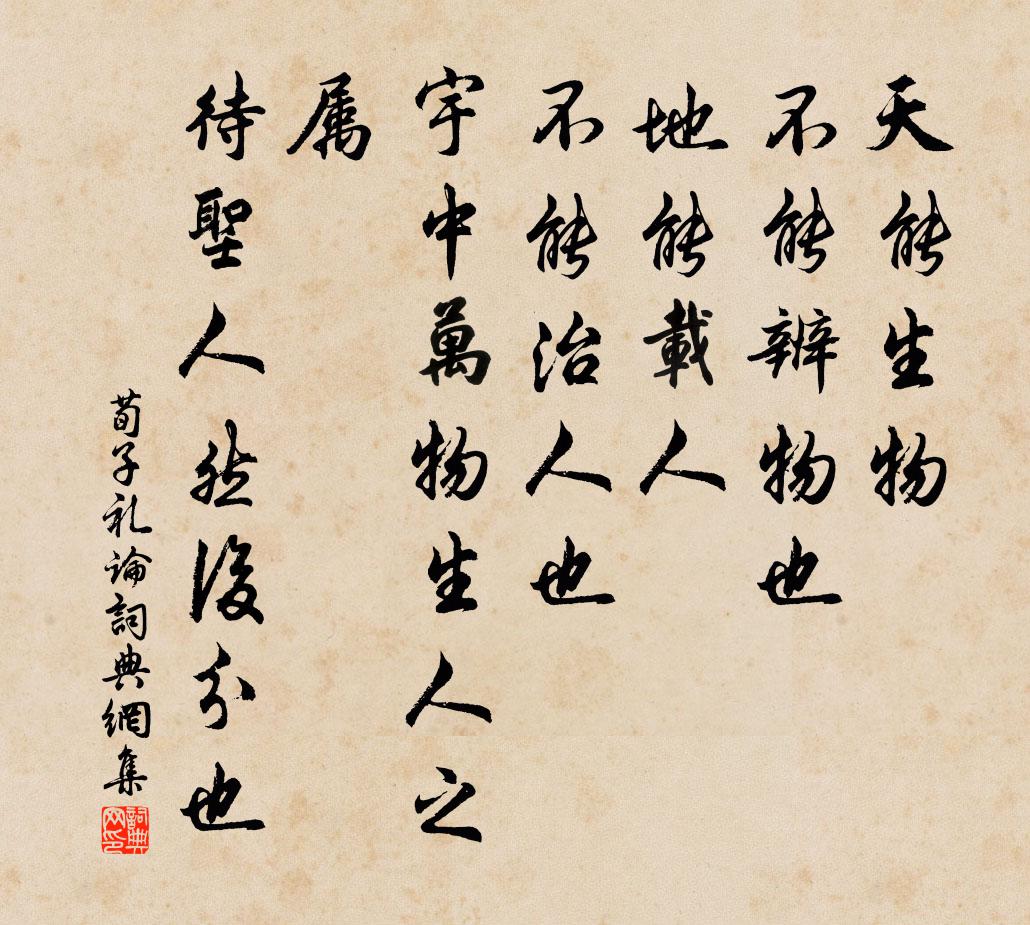 天能生物
不能辨物也
地能載人
不能治人也
宇中萬物生人之
属
待聖人然後分也
荀子礼論詞典網集
詞典网印